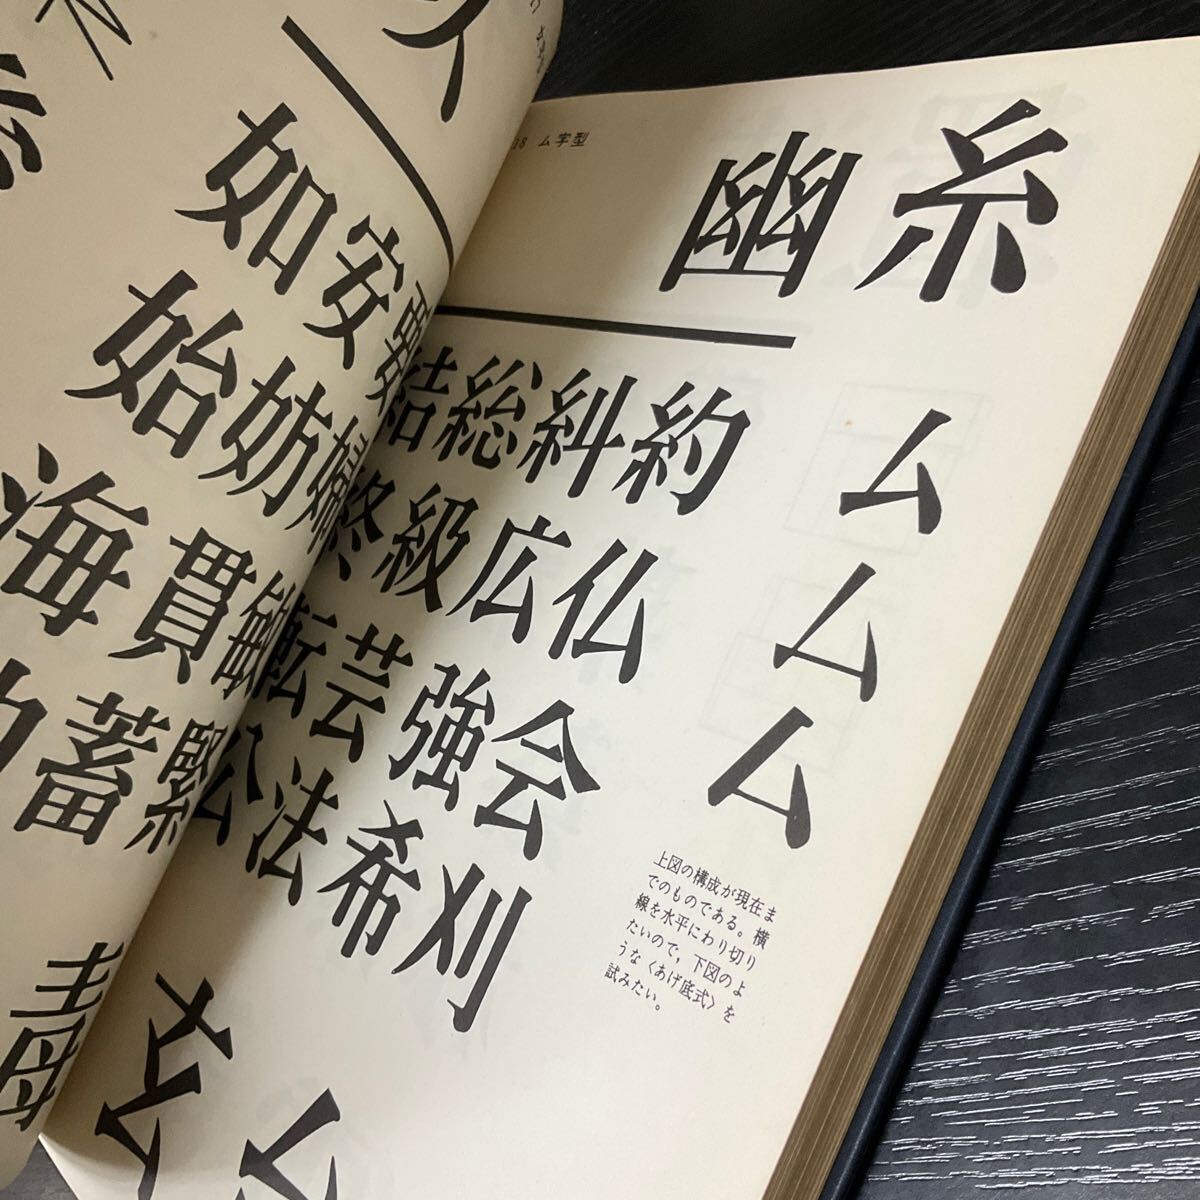 28 ム字型
幽 糸
ム
ム
ム
結総糾約
終級広仏
転芸強会
公法希刈
上図の構成が現在ま
でのものである。横
線を水平にわり切り
たいので，下図のよ
うな〈あげ底式〉を
試みたい。
ム
如安要
始妨嬌
海貫敏
蓄緊
毒